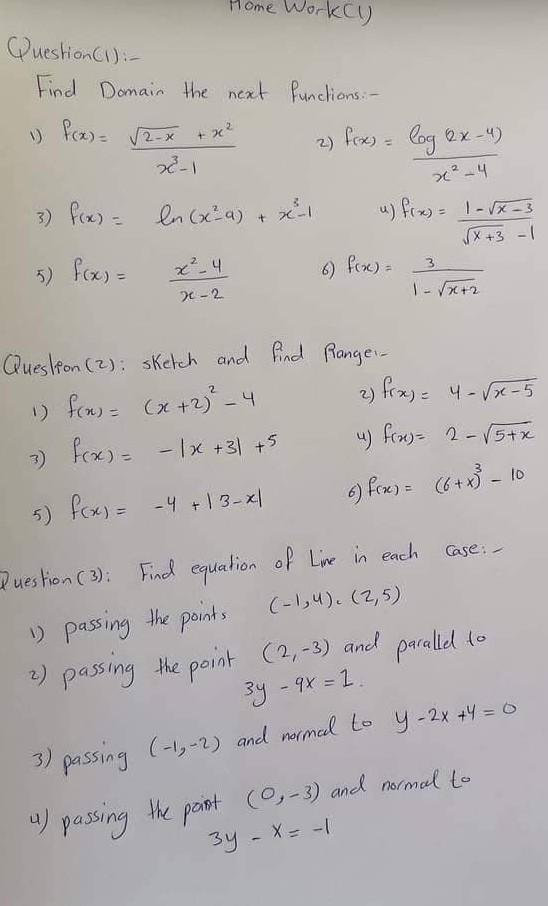 Home Work(1)
Question(1):-
Find Domain the next functions:-
1) f(x) = (√(2-x) + x²) / (x³-1)
2) f(x) = log(2x-4) / (x²-4)
3) f(x) = ln(x²-9) + x³-1
4) f(x) = (1-√(x-3)) / (√(x+3) -1)
5) f(x) = (x²-4) / (x-2)
6) f(x) = 3 / (1-√(x+2))
Question(2): sketch and find Range:-
1) f(x) = (x+2)² -4
2) f(x) = 4-√(x-5)
3) f(x) = -|x+3| +5
4) f(x) = 2-√(5+x)
5) f(x) = -4 +|3-x|
6) f(x) = (6+x)³ - 10
Question(3): Find equation of Line in each case:-
1) passing the points (-1,4), (2,5)
2) passing the point (2,-3) and parallel to
3y -9x = 1.
3) passing (-1,-2) and normal to y-2x+4=0
4) passing the point (0,-3) and normal to
3y - x = -1